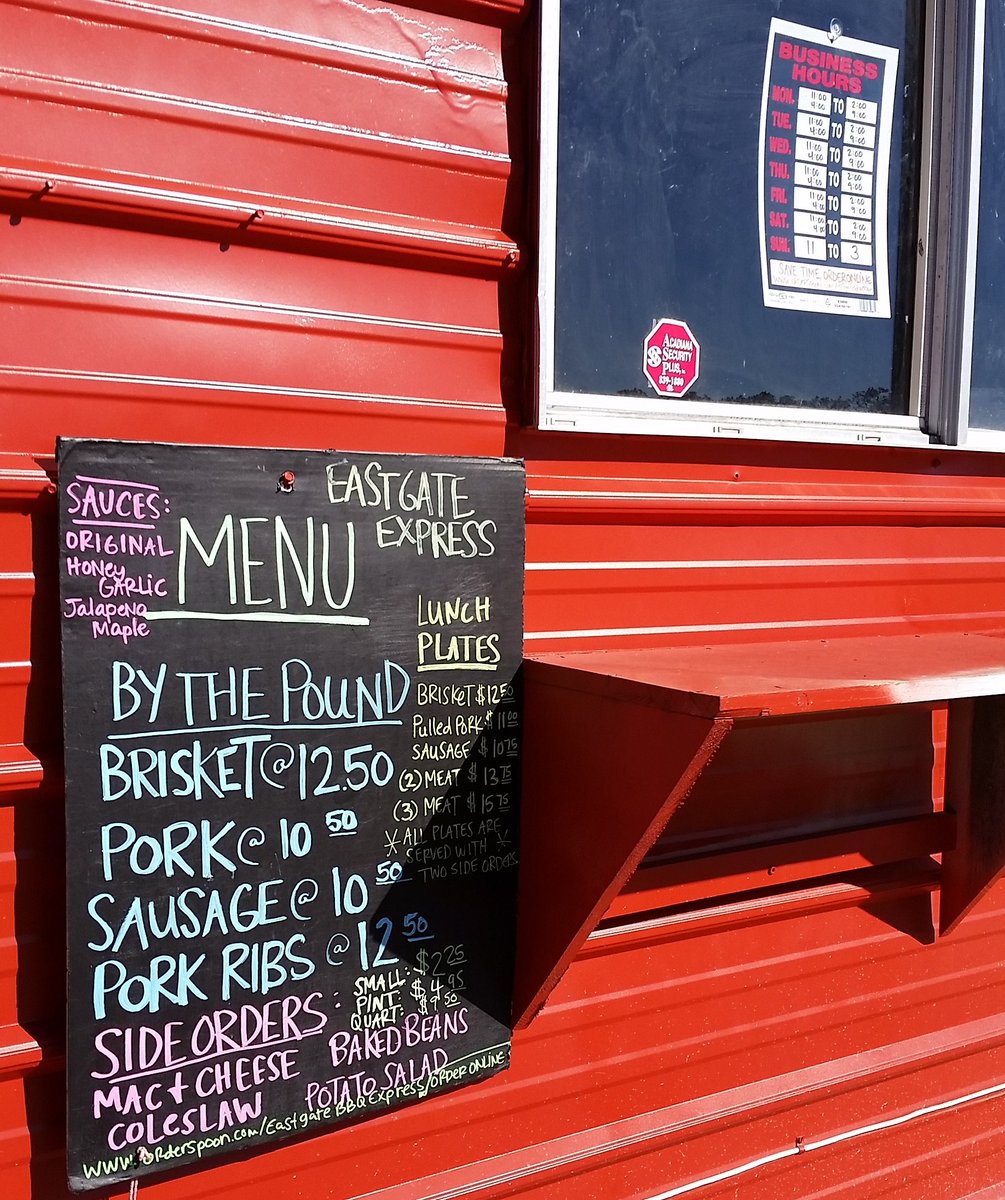 BUSINESS
HOURS
MON. 11:00 4:00 TO 2:00 9:00
TUE. 11:00 4:00 TO 2:00 9:00
WED. 11:00 4:00 TO 2:00 9:00
THU. 11:00 4:00 TO 2:00 9:00
FRI. 11:00 4:00 TO 2:00 9:00
SAT. 11:00 4:00 TO 2:00 9:00
SUN. 11 TO 3
SAVE TIME ORDER ONLINE
ACADIANA
SECURITY
PLUS, INC.
839-1880
SAUCES:
ORIGINAL
HONEY
GARLIC
Jalapeno
Maple
EASTGATE
EXPRESS
MENU
LUNCH
PLATES
BRISKET $12.50
Pulled PORK $11.00
SAUSAGE $10.75
(2) MEAT $13.75
(3) MEAT $15.75
* ALL PLATES ARE *
SERVED WITH
TWO SIDE ORDERS
BY THE POUND
BRISKET @ 12.50
PORK @ 10 50
SAUSAGE @ 10 50
PORK RIBS @ 12 50
SIDE ORDERS:
SMALL: $2.25
PINT: $4.95
QUART: $9.50
MAC + CHEESE
BAKED BEANS
COLESLAW
POTATO SALAD
WWW.Orderspoon.com/Eastgate BBQ Express/ORDER ONLINE